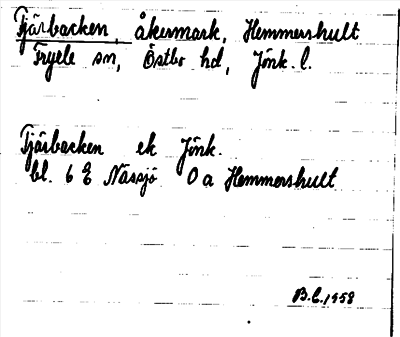 Tjärbacken, åkermark, Hemmershult
Fryele sn, Östbo hd, Jönk. l.
Tjärbacken ek Jönk.
bl. 6 E Nässjö 0 a Hemmershult
B.L. 1958